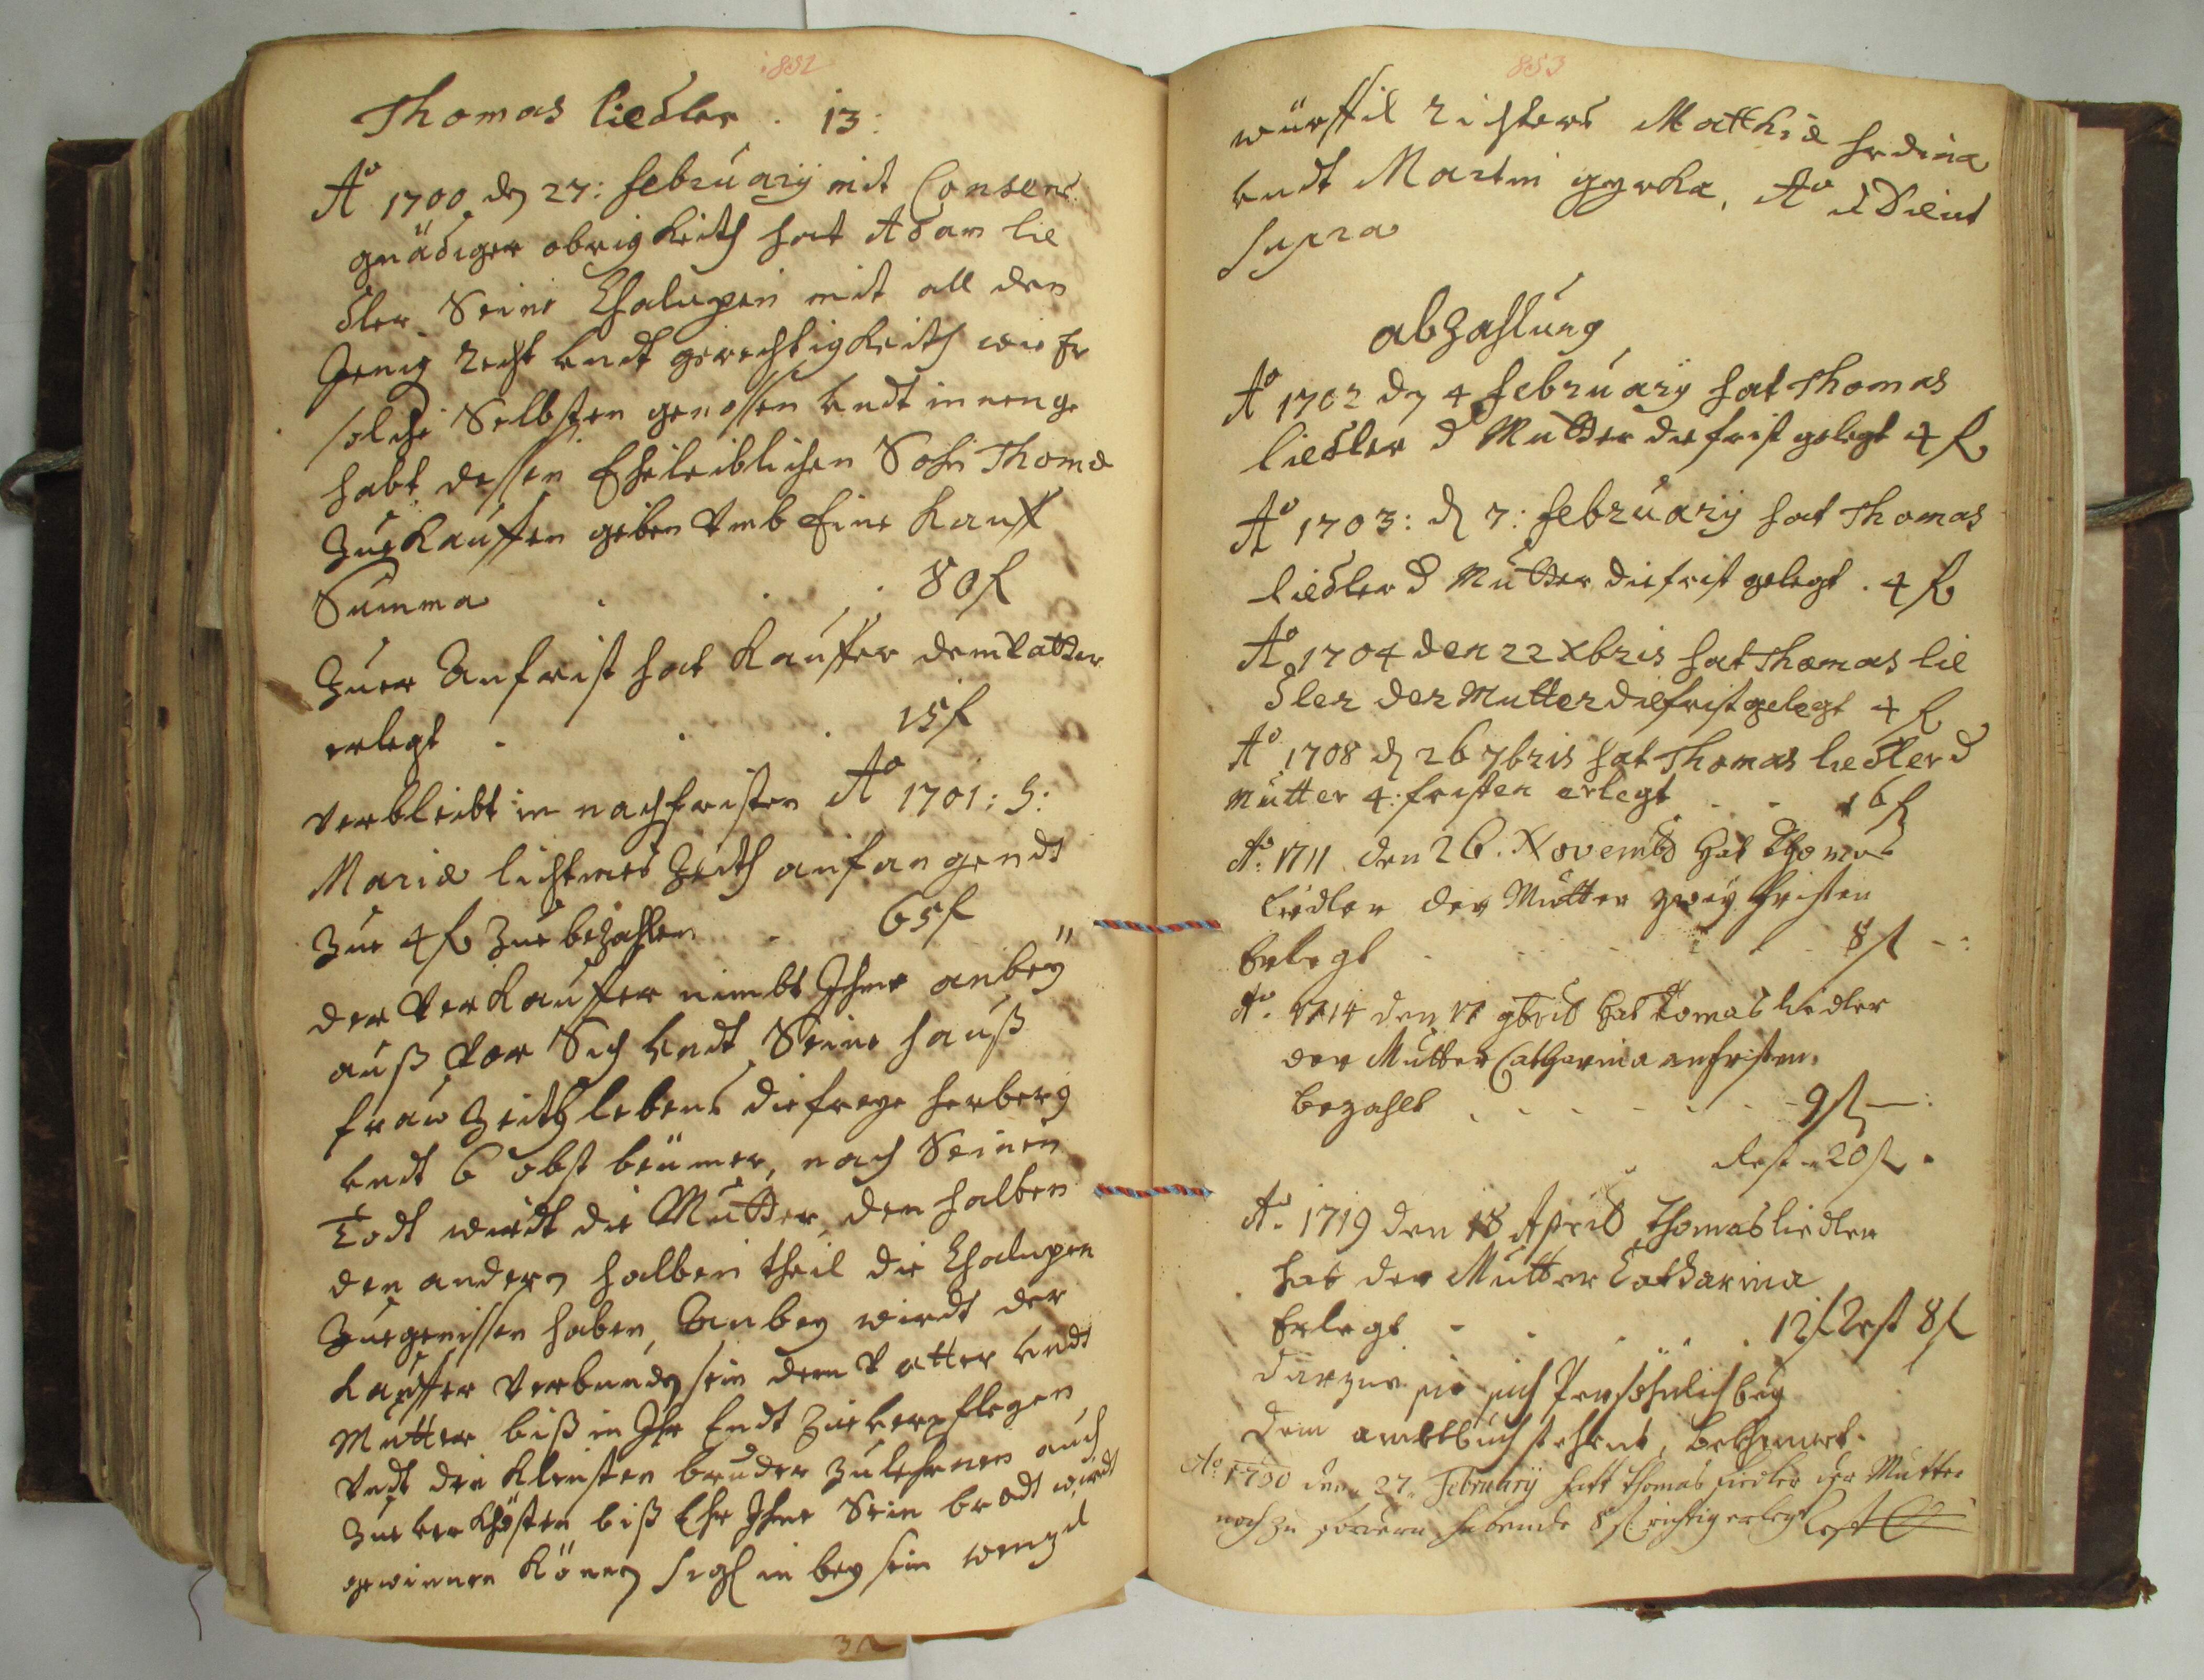 852
Thomas liedler. 13:
Ao 1700 dn 27: februarÿ mit Consens
gnädiger obrigkeith hat Adam lie
dler Seine Chalupen mit all den
Jenig Recht undt gerechtigkeith wie Er
solche Selbsten genossen undt innen ge
habt, dessen Eheleiblichen Sohn Thomæ
Zue Kauffen geben Vmb Eine Kauff
Summa . . . 80 f
Zuer Anfrist hat Kauffer dem Vatter
erlegt . . . 15 f
Verbleibt in nachfristen Ao 1701: S:
Mariæ lichtmes Zeith anfangendt
Zue 4 fl Zue bezahlen . 65 f
der Verkauffer nimbt Ihme anbeÿ
auß Vor Sich undt Seine hauß
fraw Zeith lebens die freye herberg
undt 6 obst beümer, nach Seinen
Todt wirdt die Mutter den halben
den andern halben theil die Chalupen
Zuegenissen haben, Anbey wirdt der
Kauffer Verbunden sein dem Vatter undt
Mutter biß in Ihr Endt Zue verpflegen
Vndt den Klensten bruder Zu lehrnen auch
Zue ver Khösten biß Ehr Ihme Sein brodt wirdt
gewinnen Könen, in bey sein wenzl
853
würffil Richters Matthiæ hrdina
undt Martin gyrka, Ao et Die ut
supra
abzahlung
Ao 1702 dn 4 februarÿ hat Thomas
liedler d Mutter die frist gelegt 4 fl
Ao 1703: d 7: februarÿ hat Thomas
liedler d Mutter die frist gelegt . 4 fl
Ao 1704 den 22 Xbris hat Thomas lie
dler der Mutter die frist gelegt 4 fl
Ao 1708 d 26 7bris hat Thomas liedler d
Mutter 4: fristen erlegt . . 16 fl
Ao: 1711 den 26. Novemb hat Thomas
liedler der Mutter zweÿ fristen
Erlegt . . . . 8 fl -:
Ao. 1714 den 17 9bris hat Tomas liedler
der Mutter Catharina anfristen
bezahlt . . . . 9 fl —:
Rest 20 fl.
Ao. 1719 den 18 April Thomas liedler
hat der Mutter Catharina
Erlegt - . . . 12 f Rest 8 f
darzue sie sich Persöhnlich beÿ
dem ambtbuch stehent, bekhennet.
Ao: 1730 den 27. Februarÿ hatt Thomas Liedler der Mutter
noch zu fordern habende 8 fl. richtig erlegt Rest
32